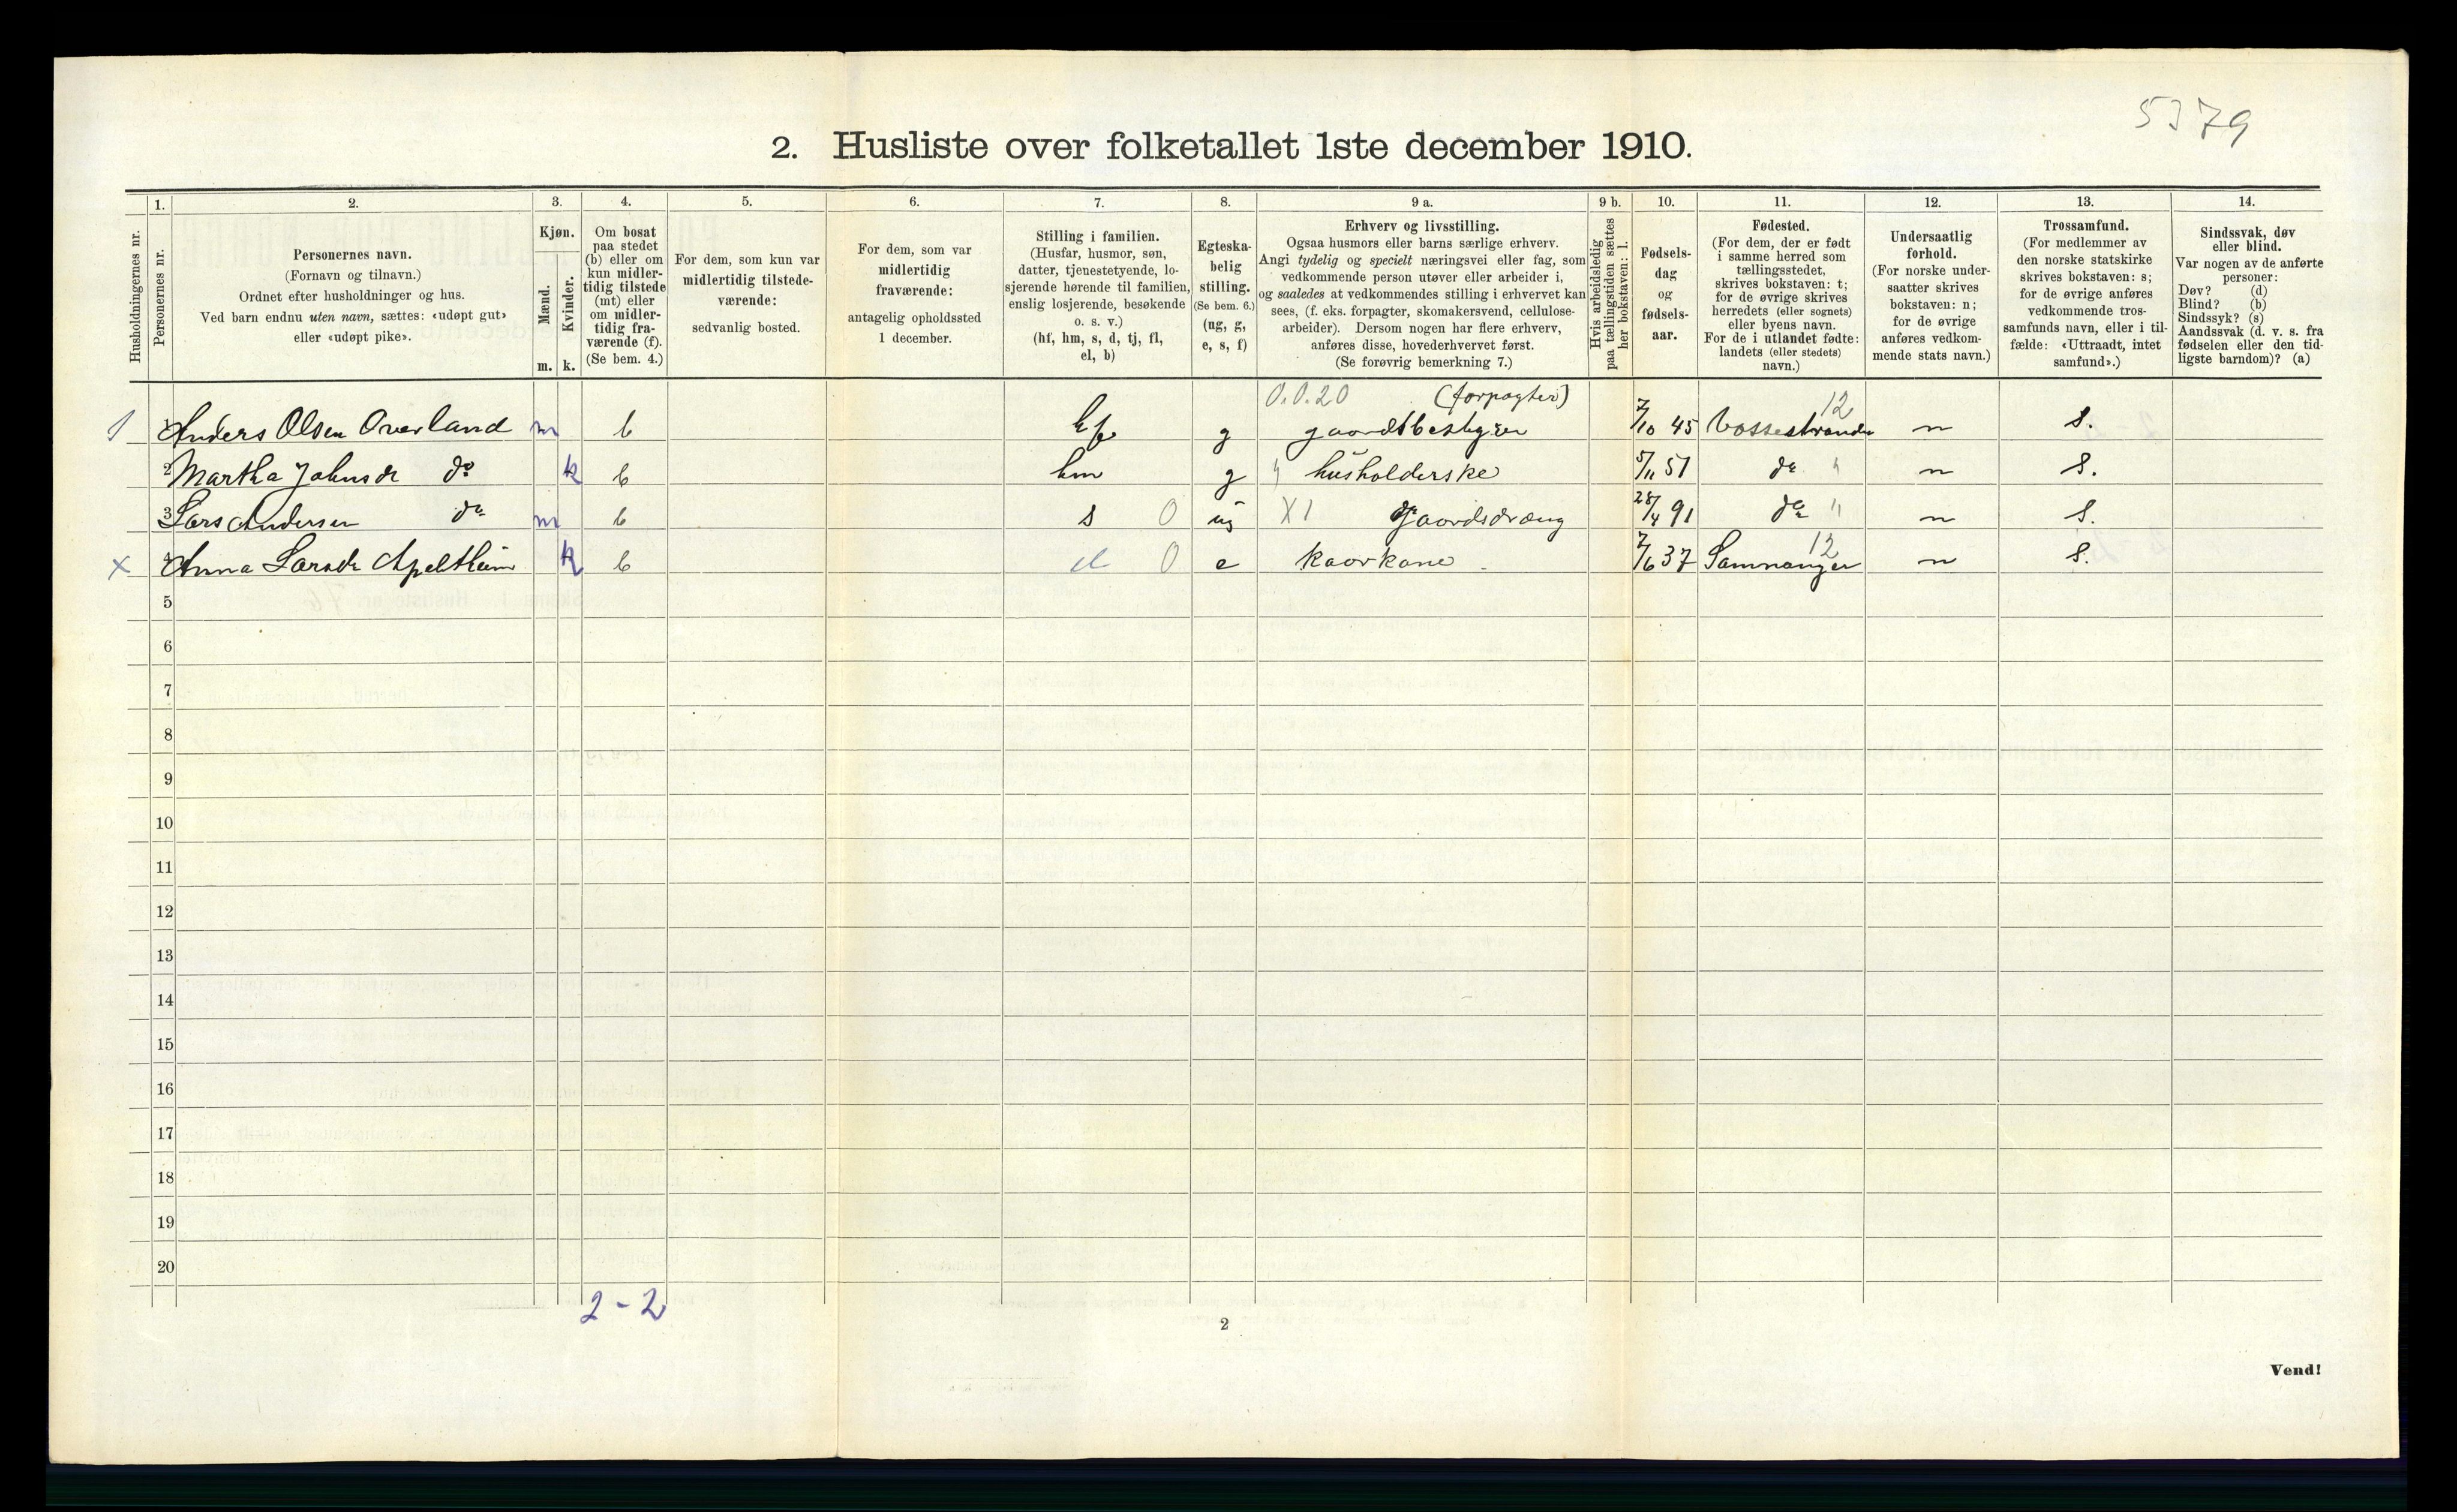 5379
2. Husliste over folketallet 1ste december 1910.
Husholdningernes nr.
1.
Personernes nr.
2.
Personernes navn.
(Fornavn og tilnavn.)
Ordnet efter husholdninger og hus.
Ved barn endnu uten navn, sættes: «udøpt gut»
eller «udøpt pike».
3.
Kjøn.
Mænd.
Kvinder.
m. k.
4.
Om bosat
paa stedet
(b) eller om
kun midler-
tidig tilstede
(mt) eller
om midler-
tidig fra-
værende (f).
(Se bem. 4.)
5.
For dem, som kun var
midlertidig tilstede-
værende:
sedvanlig bosted.
6.
For dem, som var
midlertidig
fraværende:
antagelig opholdssted
1 december.
7.
Stilling i familien.
(Husfar, husmor, søn,
datter, tjenestetyende, lo-
sjerende hørende til familien,
enslig losjerende, besøkende
o. s. v.)
(hf, hm, s, d, tj, fl,
el, b)
8.
Egteska-
belig
stilling.
(Se bem. 6.)
(ug, g,
e, s, f)
9 a.
Erhverv og livsstilling.
Ogsaa husmors eller barns særlige erhverv.
Angi tydelig og specielt næringsvei eller fag, som
vedkommende person utøver eller arbeider i,
og saaledes at vedkommendes stilling i erhvervet kan
sees, (f. eks. forpagter, skomakersvend, cellulose-
arbeider). Dersom nogen har flere erhverv,
anføres disse, hovederhvervet først.
(Se forøvrig bemerkning 7.)
9 b.
Hvis arbeidsledig
paa tællingstiden sættes
her bokstaven: l.
10.
Fødsels-
dag
og
fødsels-
aar.
11.
Fødested.
(For dem, der er født
i samme herred som
tællingsstedet,
skrives bokstaven: t;
for de øvrige skrives
herredets (eller sognets)
eller byens navn.
For de i utlandet fødte:
landets (eller stedets)
navn.)
12.
Undersaatlig
forhold.
(For norske under-
saatter skrives
bokstaven: n;
for de øvrige
anføres vedkom-
mende stats navn.)
13.
Trossamfund.
(For medlemmer av
den norske statskirke
skrives bokstaven: s;
for de øvrige anføres
vedkommende tros-
samfunds navn, eller i til-
fælde: «Uttraadt, intet
samfund».)
14.
Sindssvak, døv
eller blind.
Var nogen av de anførte
personer:
Døv? (d)
Blind? (b)
Sindssyk? (s)
Aandssvak (d. v. s. fra
fødselen eller den tid-
ligste barndom)? (a)
0.0.20 (forpagter) 12
1 Anders Olsen Overland m b hf g gaardsbestyrer 7/10 45 Vossestranden n s.
2 Martha Johnsdr do k b hm g husholderske 5/11 51 do n s.
3 Lars Andersen do m b s 0 ug X1 Gaardsdræng 28/4 91 do n s.
x 4 Anna Larsdr Apeltheim k b el 0 e kaarkone 7/6 37 Samnanger 12 n s.
5
6
7
8
9
10
11
12
13
14
15
16
17
18
19
20
2 - 2
2
Vend!